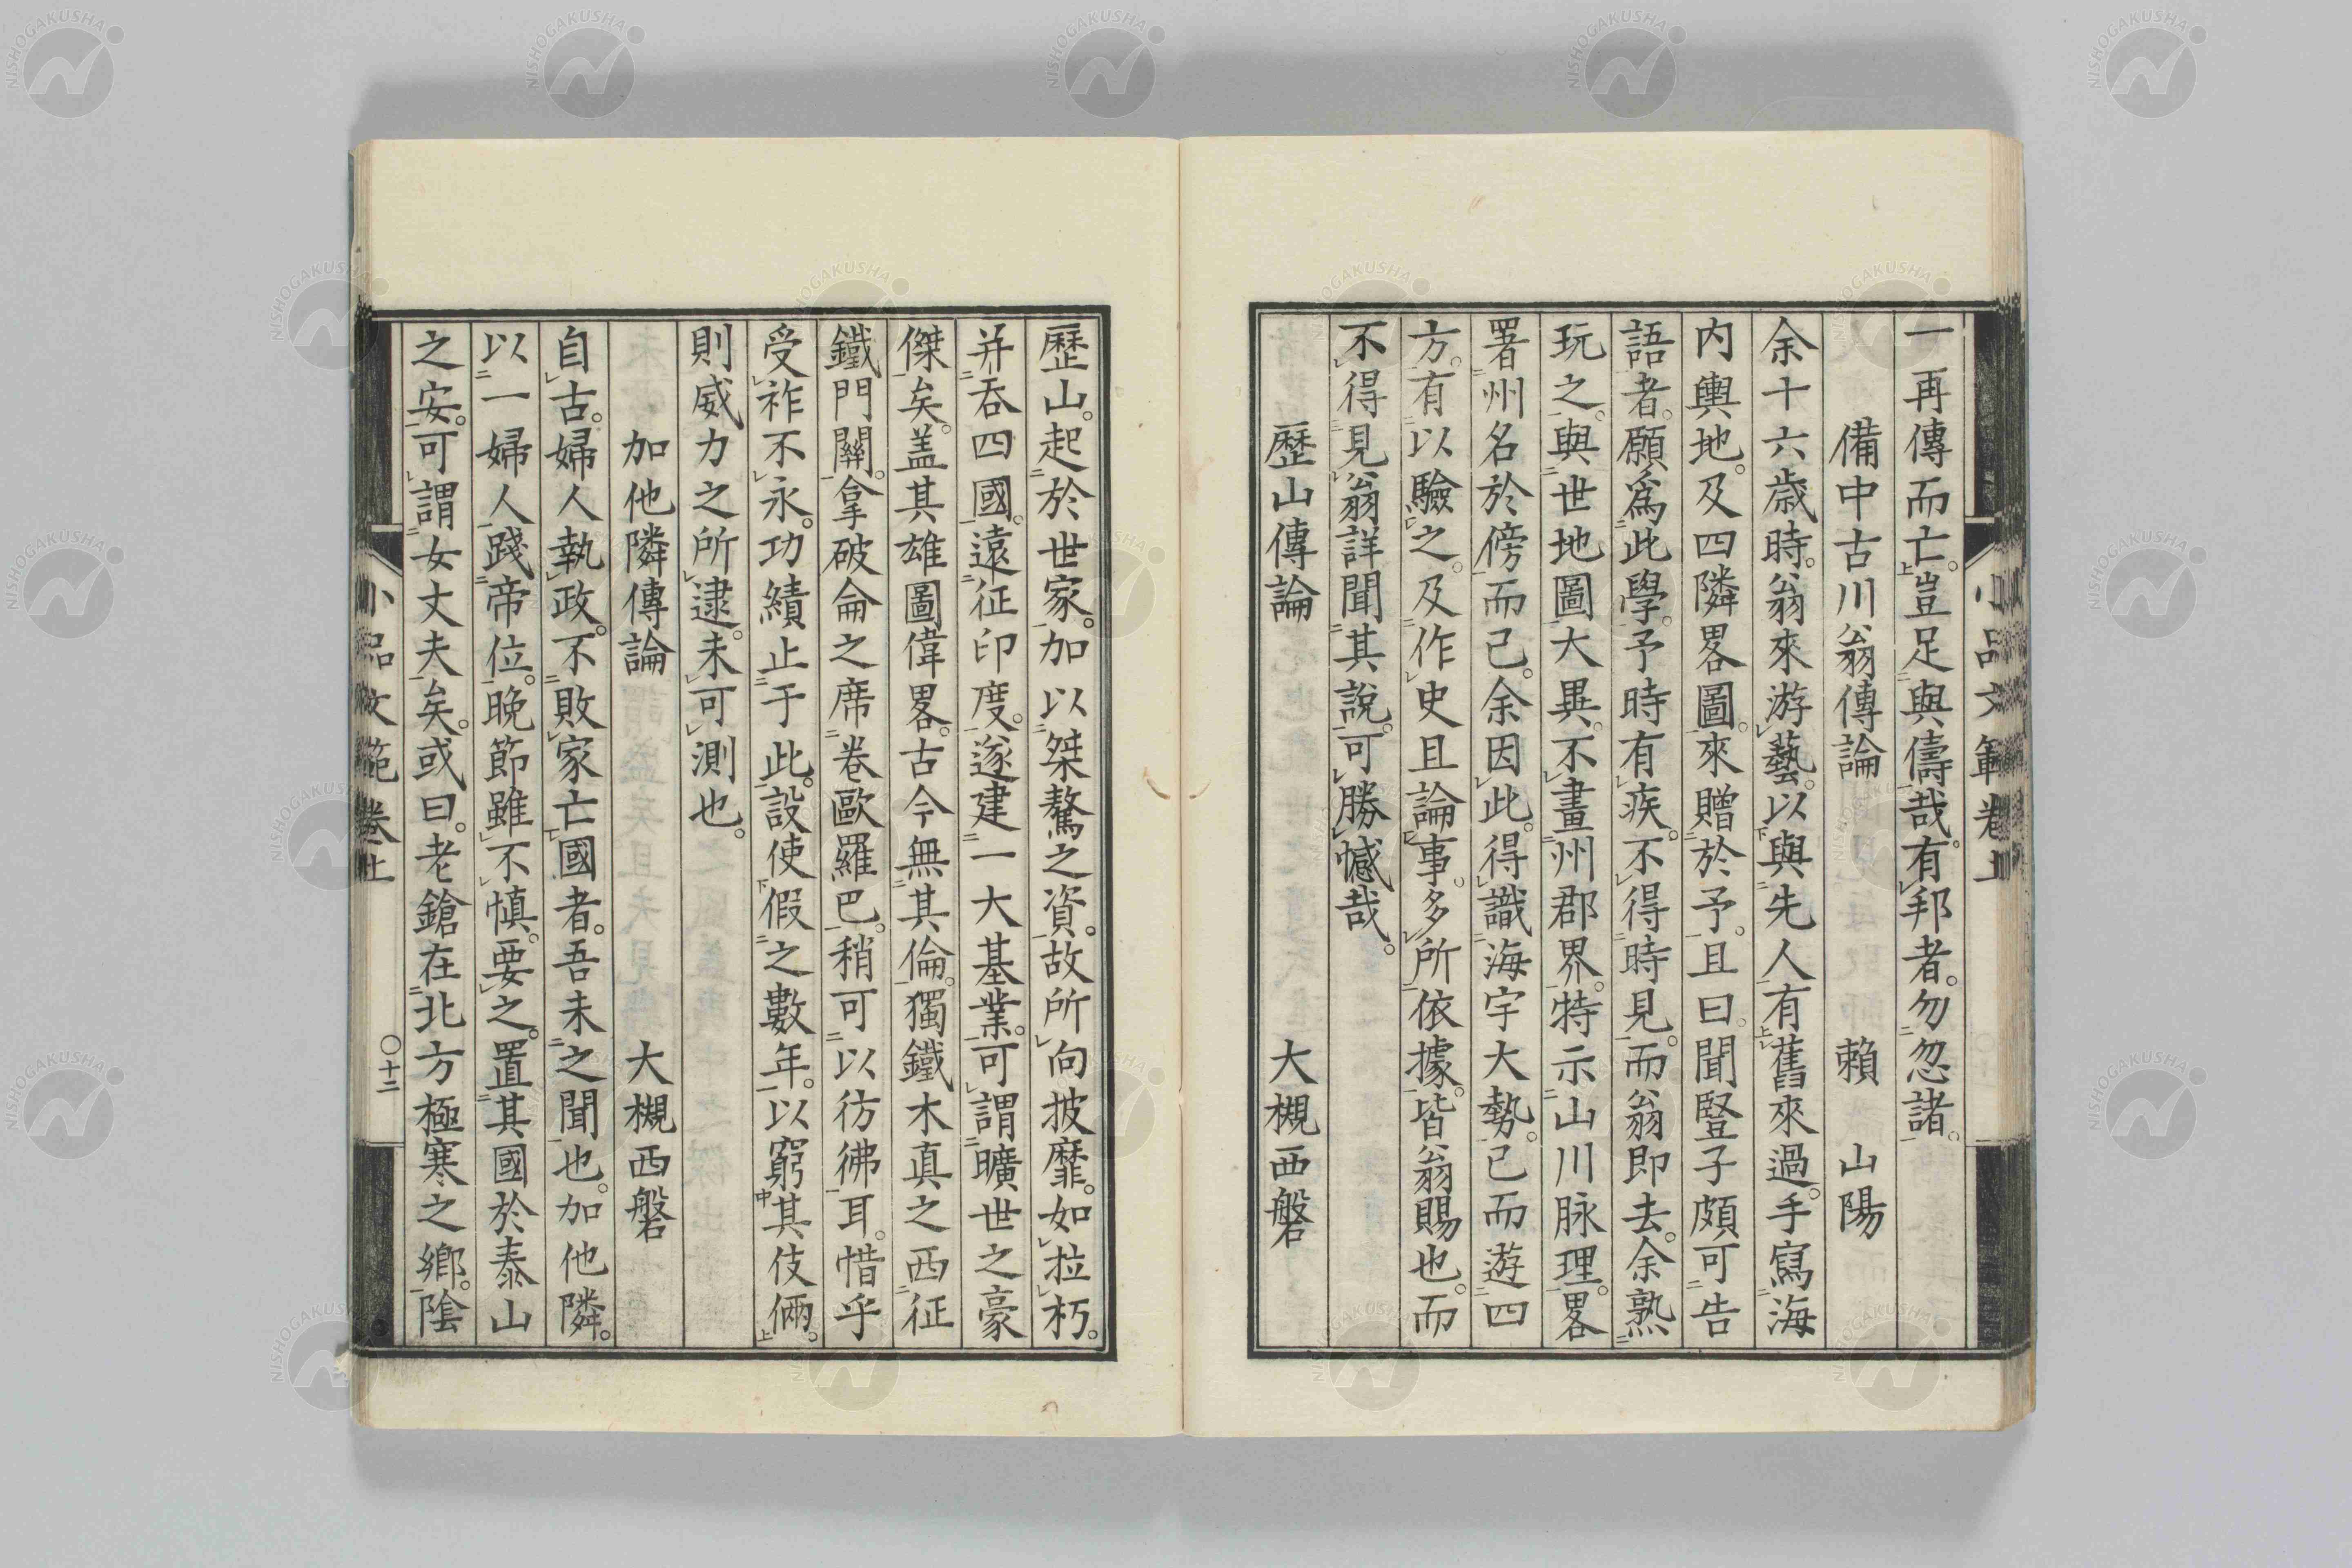 一再傳而亡。豈足與儔哉。有邦者。勿忽諸。
備中古川翁傳論　賴山陽
余十六歲時。翁來游藝。以與先人有舊來過。手寫海
内輿地。及四隣畧圖。來贈於予。且曰。聞豎子頗可告
語者。願爲此學。予時有疾。不得時見。而翁即去。余熟
玩之。與世地圖大異。不畫州郡界。特示山川脉理。畧
署州名於傍而已。余因此。得識海宇大勢。已而遊四
方。有以驗之。及作史且論事。多所依據。皆翁賜也。而
不得見翁詳聞其說。可勝憾哉。
歷山傳論　大槻西磐
歷山。起於世家。加以桀驁之資。故所向披靡。如拉朽。
并吞四國。遠征印度。遂建一大基業。可謂曠世之豪
傑矣。盖其雄圖偉畧。古今無其倫。獨鐵木真之西征
鐵門關。拿破侖之席卷歐羅巴。稍可以彷彿耳。惜乎
受祚不永。功績止于此。設使假之數年。以窮其伎倆。
則威力之所逮。未可測也。
加他隣傳論　大槻西磐
自古。婦人執政。不敗家亡國者。吾未之聞也。加他隣。
以一婦人踐帝位。晚節雖不慎。要之。置其國於泰山
之安。可謂女丈夫矣。或曰。老鎗在北方極寒之鄉。陰
小品文範卷上
〇十二